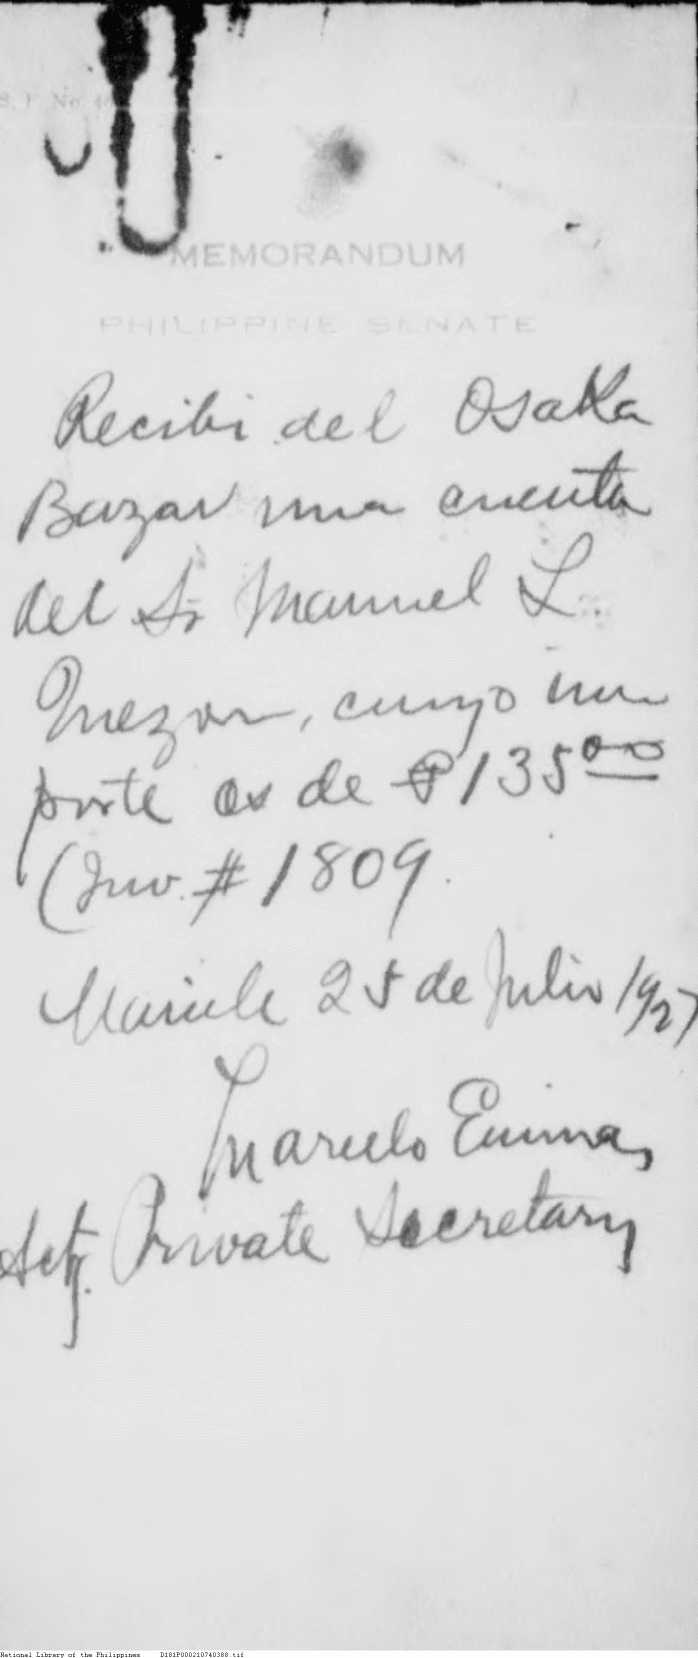 S. F. No.
MEMORANDUM
PHILIPPINE SENATE
Recibi del Osaka
Bazar una cuenta
del Sr Manuel L.
Quezon, cuyo im
porte es de ₱135⁰⁰
(Inv. # 1809.
Manila 25 de Julio 1927
Marcelo
Actg. Private Secretary
National Library of the Philippines D181P000210740388.tif